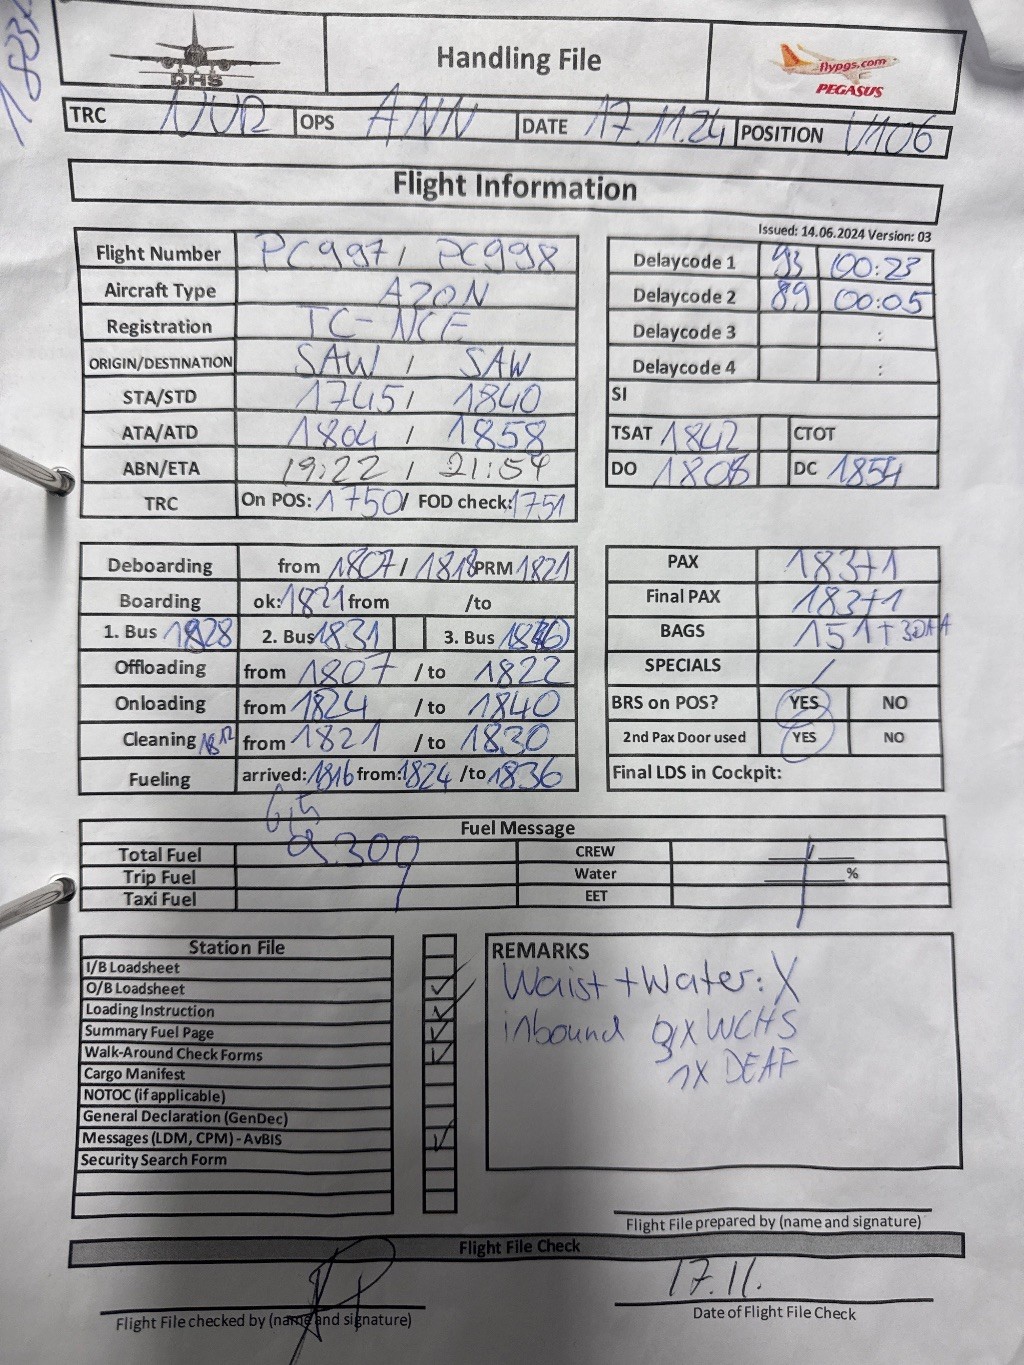 183
DHS
Handling File
flypgs.com
PEGASUS
TRC NUR OPS ANN DATE 17.11.24 POSITION V106
Flight Information
Issued: 14.06.2024 Version: 03
Flight Number PC997 / PC998
Aircraft Type A20N
Registration TC-NCE
ORIGIN/DESTINATION SAW / SAW
STA/STD 1745 / 1840
ATA/ATD 1804 / 1858
ABN/ETA 19:22 / 21:54
TRC On POS: 1750 / FOD check: 1751
Delaycode 1 93 00:23
Delaycode 2 89 00:05
Delaycode 3 :
Delaycode 4 :
SI
TSAT 1842 CTOT
DO 1808 DC 1854
Deboarding from 1807 / 1818 PRM 1821
Boarding ok: 1821 from /to
1. Bus 1828 2. Bus 1831 3. Bus
Offloading from 1807 / to 1822
Onloading from 1824 / to 1840
Cleaning 1812 from 1821 / to 1830
Fueling arrived: 1816 from: 1824 /to 1836
PAX 183+1
Final PAX 183+1
BAGS 151+3DAA
SPECIALS /
BRS on POS? YES NO
2nd Pax Door used YES NO
Final LDS in Cockpit:
6,5
Fuel Message
Total Fuel 9300 CREW
Trip Fuel Water %
Taxi Fuel EET
Station File
I/B Loadsheet
O/B Loadsheet ✓
Loading Instruction ✓
Summary Fuel Page ✓
Walk-Around Check Forms ✓
Cargo Manifest
NOTOC (if applicable)
General Declaration (GenDec)
Messages (LDM, CPM) - AvBIS ✓
Security Search Form
REMARKS
Waist + Water: X
inbound x WCHS
1x DEAF
Flight File prepared by (name and signature)
Flight File Check
17.11.
Flight File checked by (name and signature)
Date of Flight File Check